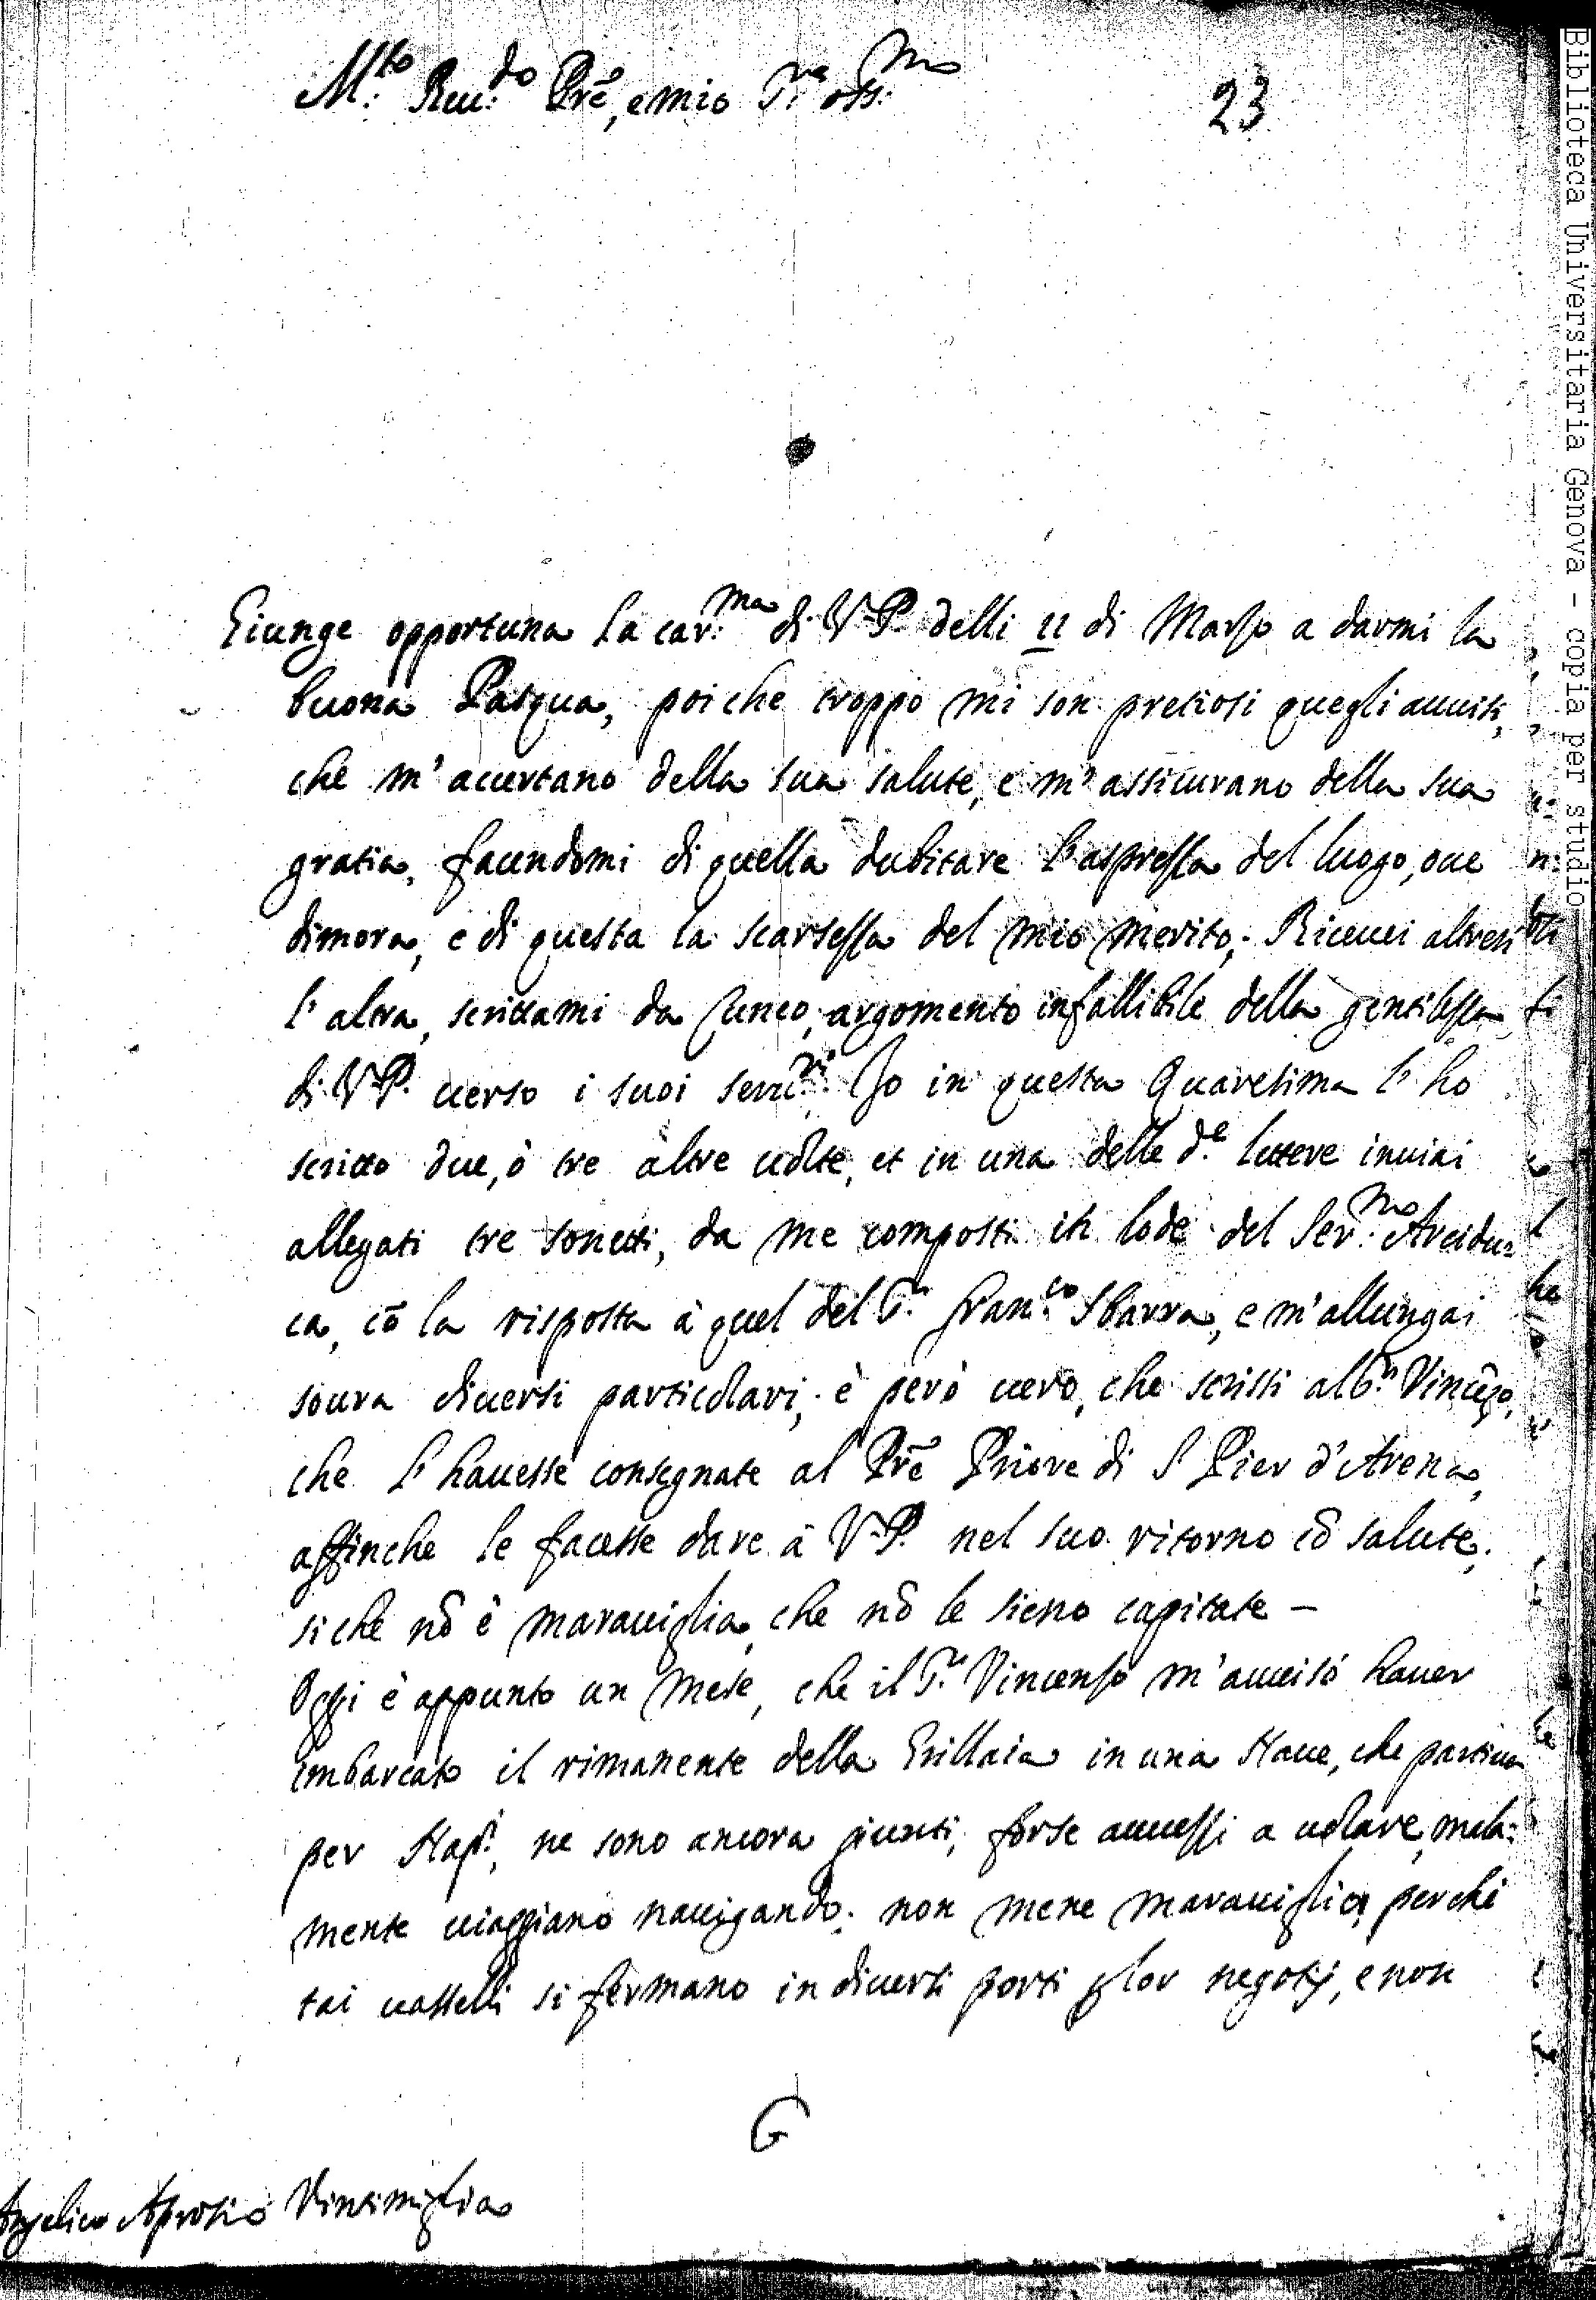 M.to Reu.do Prē, e mio S.re oss.mo
23
Giunge opportuna la car.ma di V.P. delli 11 di Marzo a darmi la
buona Pasqua, poiche troppo mi son pretiosi quegli auuisi,
che m'accertano della sua salute, e m'assicurano della sua
gratia, facendomi di quella dubitare l'asprezza del luogo, oue
dimora, e di questa la scarsezza del mio merito. Riceuei altresi
l'altra, scrittami da Cuneo, argomento infallibile della gentilezza
di V.P. uerso i suoi seru.ri Io in questa Quaresima l'ho
scritto due, ò tre altre uolte, et in una delle d.e lettere inuiai
allegati tre sonetti, da me composti in lode del Ser.mo Arcidu=
ca, cō la risposta à quel del S.r Fran.co Sbarra, e m'allungai
soura diuersi particolari; è però uero, che scrissi al S.r Vincēzo,
che l'hauesse consegnate al Prē Priore di S Pier d'Arena,
affinche le facesse dare à V.P. nel suo ritorno cō salute.
si che nō è marauiglia, che nō le sieno capitate –
Oggi è appunto un mese, che il S.r Vincenzo m'auuisò hauer
imbarcato il rimanente della Grillaia in una Naue, che partiua
per Nap.i, ne sono ancora giunti, forse auuezzi a uolare, mala=
mente uiaggiano nauigando; non mene marauiglio, perche
tai uasselli si fermano in diuersi porti p lor negotij, e non
G
Angelico Aprosio Vintimiglia
Biblioteca Universitaria Genova - copia per studio